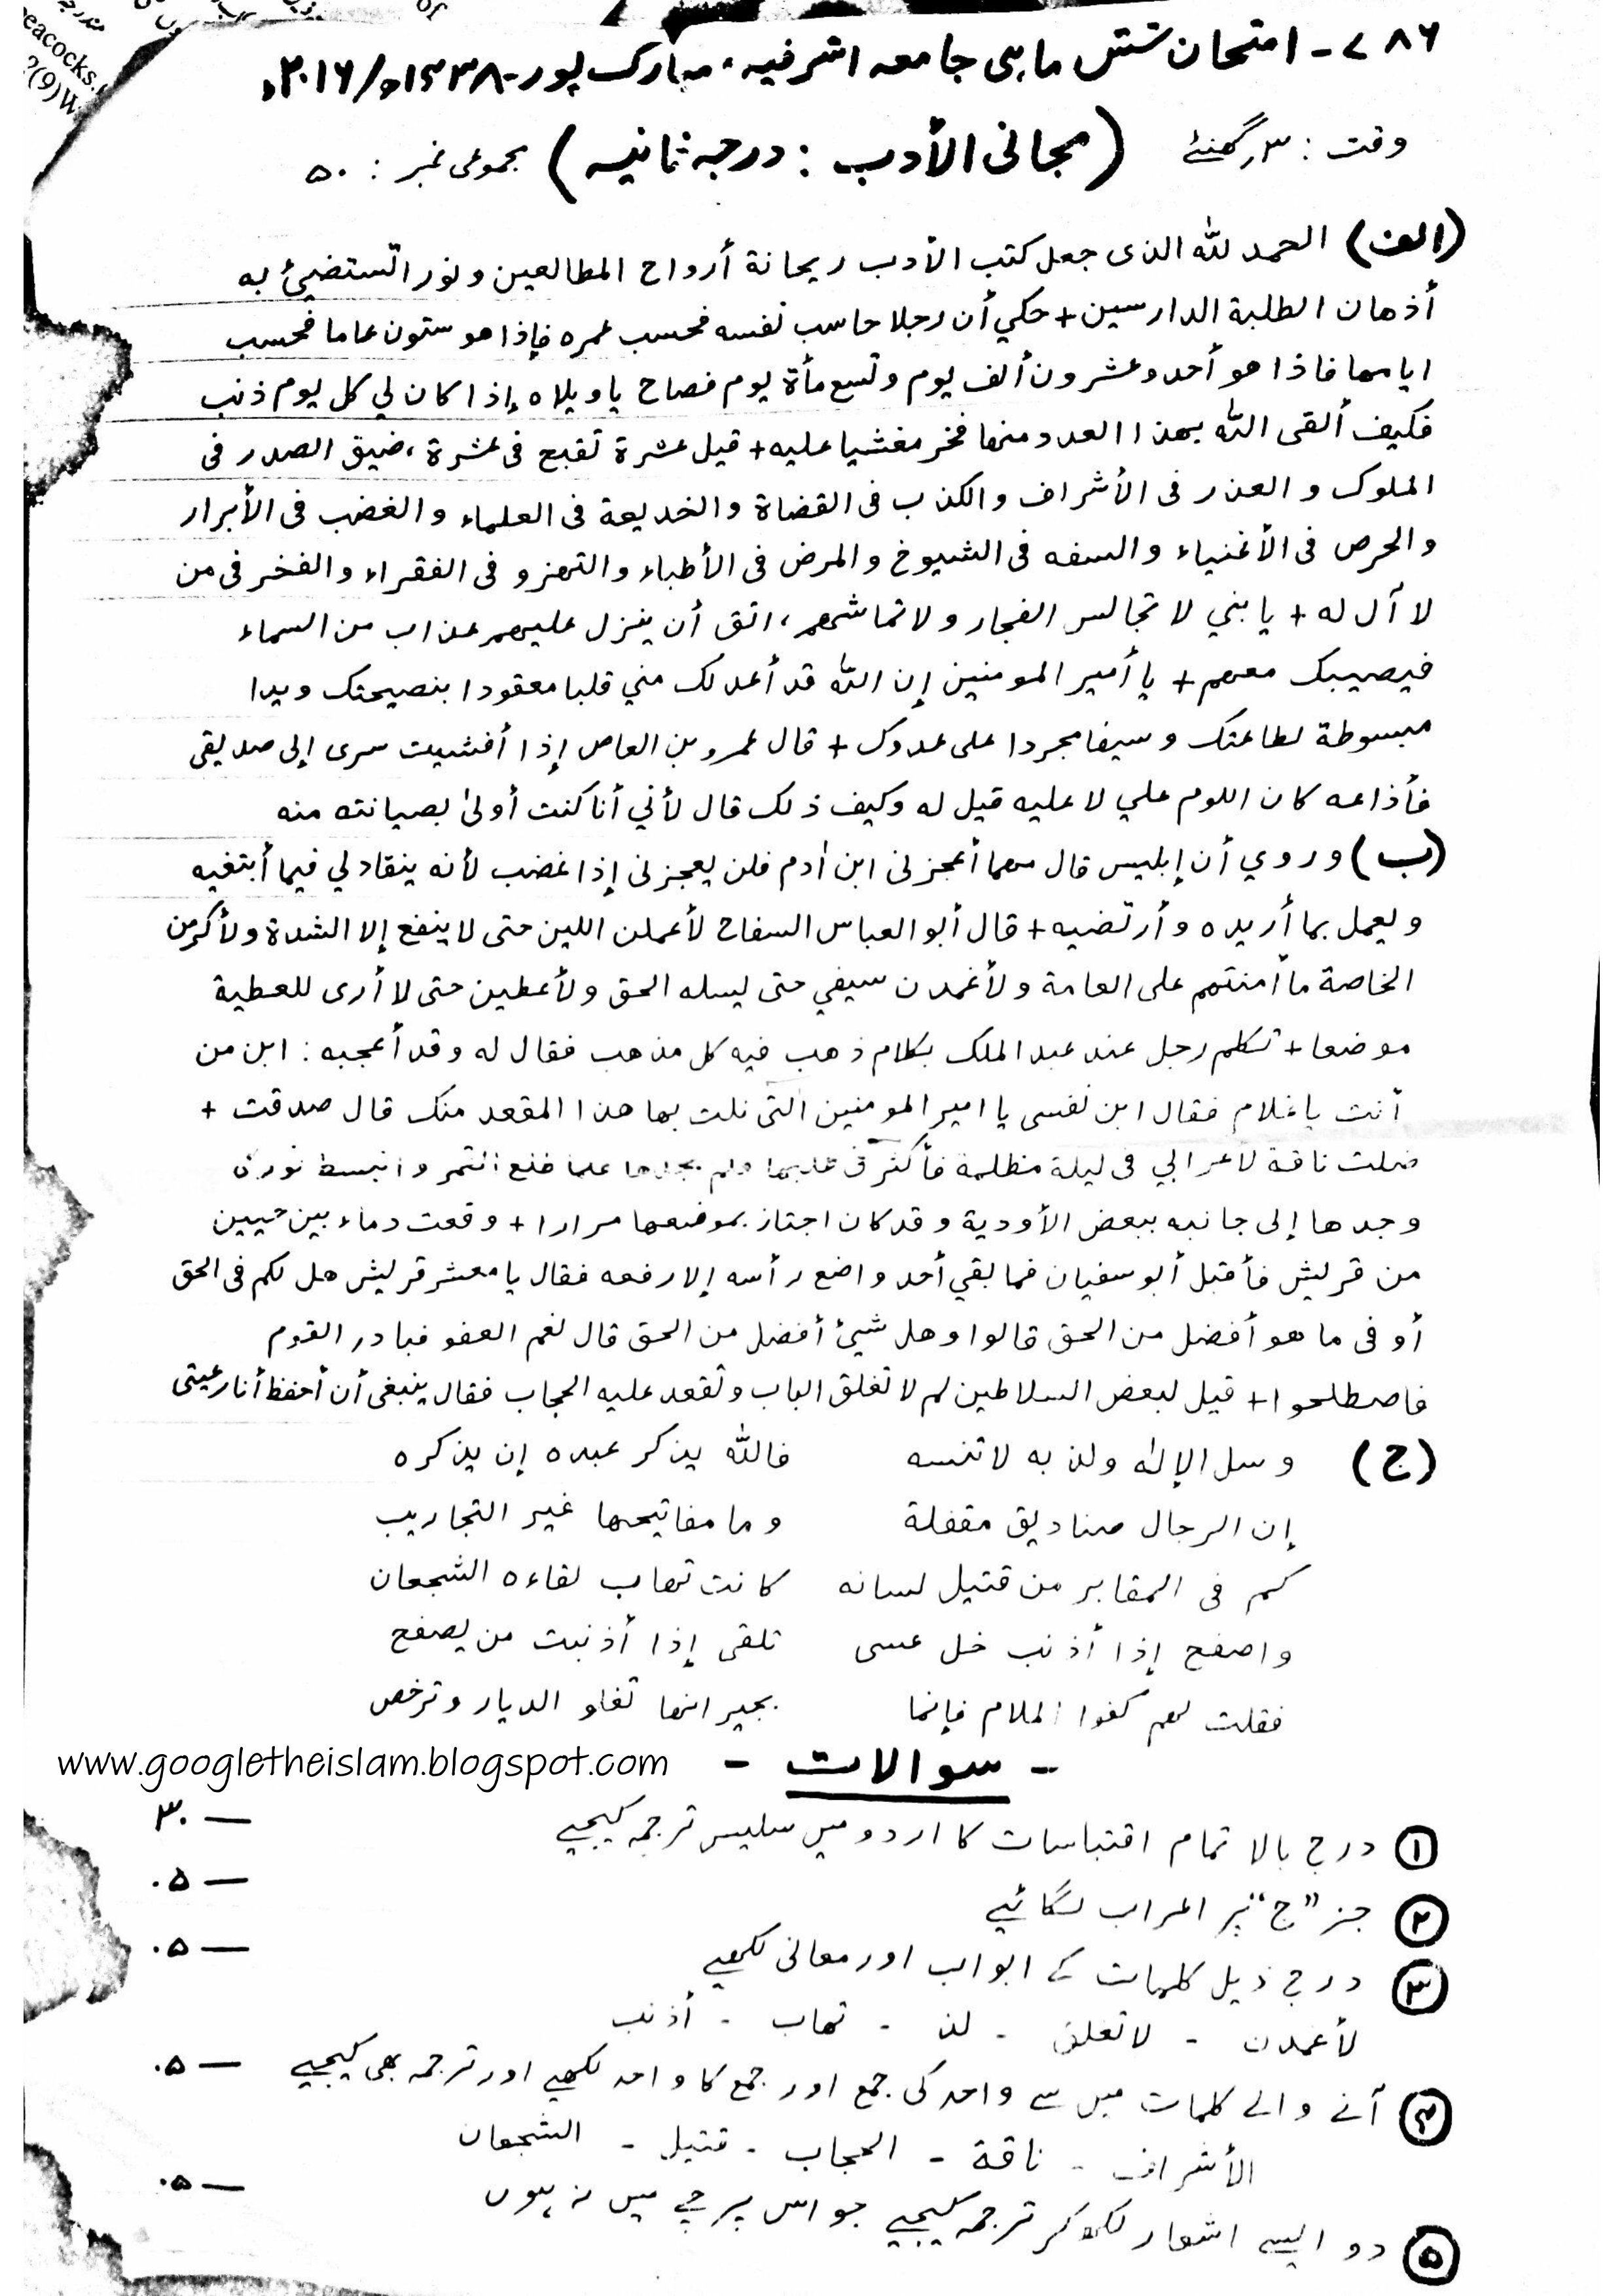 of
eacocks.
?(9)W
۷۸۶ - امتحان شش ماہی جامعہ اشرفیہ، مبارک پور - ۱۴۳۸ھ/۲۰۱۶ء
وقت: ۳؍گھنٹے (مجانی الأدب : درجہ ثانیہ) مجموعی نمبر: ۵۰
(الف) الحمد للہ الذی جعل کتب الأدب ریحانة أرواح المطالعین و نورا تستضیئ به
أذهان الطلبة الدارسین + حكي أن رجلا حاسب نفسه فحسب عمره فإذا هو ستون عاما فحسب
ایامها فاذا هو أحد و عشرون ألف یوم و تسع مأة یوم فصاح یا ویلاه إذا کان لي کل یوم ذنب
فکیف ألقی اللہ بهذا العدد منها فخر مغشیا علیه + قیل عشرة تقبح فی عشرة، ضیق الصدر فی
الملوک و العذر فی الأشراف و الکذب فی القضاة و الخدیعة فی العلماء و الغضب فی الأبرار
و الحرص فی الأغنیاء و السفه فی الشیوخ و المرض فی الأطباء و التهزو فی الفقراء و الفخر فی من
لا آل له + یا بني لا تجالس الفجار و لا تماشهم، اتق أن ینزل علیهم عذاب من السماء
فیصیبک معهم + یا أمیر المومنین إن اللہ قد أعد لک مني قلبا معقودا بنصیحتک و یدا
مبسوطة لطاعتک و سیفا مجردا علی عدوک + قال عمرو بن العاص إذا أفشیت سری إلی صدیقی
فأذاعه کان اللوم علي لا علیه قیل له و کیف ذلک قال لأني أنا کنت أولیٰ بصیانته منه
(ب) و روي أن إبلیس قال مهما أعجزنی ابن اٰدم فلن یعجزنی إذا غضب لأنه ینقاد لي فیما أبتغیه
و یعمل بما أریده و أرتضیه + قال أبو العباس السفاح لأعملن اللین حتی لا ینفع إلا الشدة و لأکرمن
الخاصة ما أمنتهم علی العامة و لأغمدن سیفي حتی یسله الحق و لأعطین حتی لا أری للعطیة
موضعا + تکلم رجل عند عبد الملک بکلام ذهب فیه کل مذهب فقال له و قد أعجبه : ابن من
أنت یا غلام فقال ابن نفسی یا امیر المومنین التی نلت بها هذا المقعد منک قال صدقت +
ضلت ناقة لأعرابي فی لیلة مظلمة فأکثر فی طلبها و لم یجدها فلما طلع القمر و انبسط نوره
وجدها إلی جانبه ببعض الأودیة و قد کان اجتاز بموضعها مرارا + وقعت دماء بین حیین
من قریش فأقبل أبو سفیان فما بقي أحد واضع رأسه إلا رفعه فقال یا معشر قریش هل لکم فی الحق
أو فی ما هو أفضل من الحق قالوا و هل شیئ أفضل من الحق قال نعم العفو فبادر القوم
فاصطلحوا + قیل لبعض السلاطین لم لا تغلق الباب و تقعد علیه الحجاب فقال ینبغی أن أحفظ أنا رعیتی
(ج) و سل الإلٰه و لذ به لا تنسه فاللہ یذکر عبده إن یذکره
إن الرجال صنادیق مقفلة و ما مفاتیحها غیر التجاریب
کم فی المقابر من قتیل لسانه کانت تهاب لقاءه الشجعان
و اصفح إذا أذنب خل عسی تلقی إذا أذنبت من یصفح
فقلت لهم کفوا الملام فإنما بجیرانها تغلو الدیار و ترخص
- سوالات -
www.googletheislam.blogspot.com
① درج بالا تمام اقتباسات کا اردو میں سلیس ترجمہ کیجیے — ۳۰
② جز ”ج“ پر اعراب لگائیے — ۰۵
③ درج ذیل کلمات کے ابواب اور معانی لکھیے — ۰۵
لأغمدن - لا تغلق - لذ - تهاب - أذنب
④ آنے والے کلمات میں سے واحد کی جمع اور جمع کا واحد لکھیے اور ترجمہ بھی کیجیے — ۰۵
الأشراف - ناقة - الحجاب - قتیل - الشجعان
⑤ دو ایسے اشعار لکھ کر ترجمہ کیجیے جو اس پرچے میں نہ ہوں — ۰۵